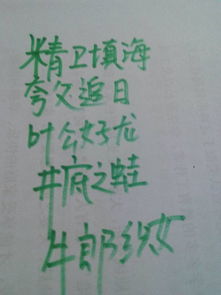 精卫填海
夸父追日
叶公好龙
井底之蛙
牛郎织女